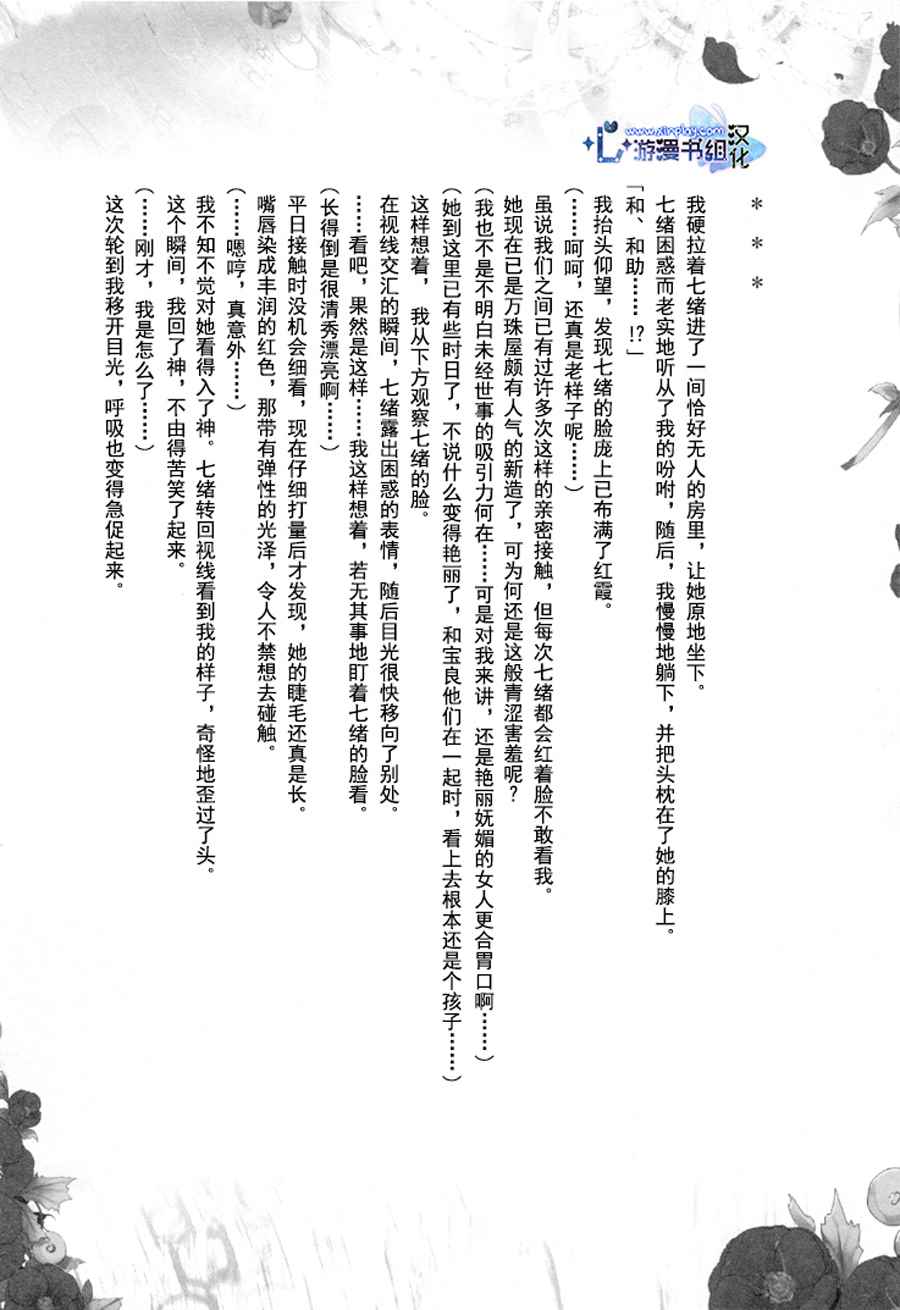 www.xinplay.com
游漫书组汉化
＊ ＊ ＊
我硬拉着七绪进了一间恰好无人的房里，让她原地坐下。
七绪困惑而老实地听从了我的吩咐，随后，我慢慢地躺下，并把头枕在了她的膝上。
「和、和助……!?」
我抬头仰望，发现七绪的脸庞上已布满了红霞。
（……呵呵，还真是老样子呢……）
虽说我们之间已有过许多次这样的亲密接触，但每次七绪都会红着脸不敢看我。
她现在已是万珠屋颇有人气的新造了，可为何还是这般青涩害羞呢？
（我也不是不明白未经世事的吸引力何在……可是对我来讲，还是艳丽妩媚的女人更合胃口啊……）
（她到这里已有些时日了，不说什么变得艳丽了，和宝良他们在一起时，看上去根本还是个孩子……）
这样想着，我从下方观察七绪的脸。
在视线交汇的瞬间，七绪露出困惑的表情，随后目光很快移向了别处。
……看吧，果然是这样……我这样想着，若无其事地盯着七绪的脸看。
（长得倒是很清秀漂亮啊……）
平日接触时没机会细看，现在仔细打量后才发现，她的睫毛还真是长。
嘴唇染成丰润的红色，那带有弹性的光泽，令人不禁想去碰触。
（……嗯哼，真意外……）
我不知不觉对她看得入了神。七绪转回视线看到我的样子，奇怪地歪过了头。
这个瞬间，我回了神，不由得苦笑了起来。
（……刚才，我是怎么了……）
这次轮到我移开目光，呼吸也变得急促起来。